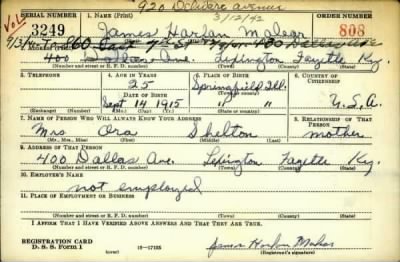 920 Delaware avenue
3/12/42
SERIAL NUMBER 1. NAME (Print) ORDER NUMBER
3249 James Harlan 808
400 Dallas Ave. Lexington Fayette Ky.
(Number and street or R. F. D. number) (Town) (County) (State)
3. TELEPHONE 4. AGE IN YEARS 5. PLACE OF BIRTH 6. COUNTRY OF CITIZENSHIP
25 Springfield Ill.
DATE OF BIRTH (Town or county)
Sept 14 1915 U.S.A.
(Exchange) (Number) (Mo.) (Day) (Yr.) (State or country)
7. NAME OF PERSON WHO WILL ALWAYS KNOW YOUR ADDRESS 8. RELATIONSHIP OF THAT PERSON
Mrs Ora Shelton mother
(Mr., Mrs., Miss) (First) (Middle) (Last)
9. ADDRESS OF THAT PERSON
400 Dallas Ave. Lexington Fayette Ky.
(Number and street or R. F. D. number) (Town) (County) (State)
10. EMPLOYER'S NAME
not employed
11. PLACE OF EMPLOYMENT OR BUSINESS
(Number and street or R. F. D. number) (Town) (County) (State)
I AFFIRM THAT I HAVE VERIFIED ABOVE ANSWERS AND THAT THEY ARE TRUE.
REGISTRATION CARD
D. S. S. Form 1 16-17105 James Harlan
(Registrant's signature)